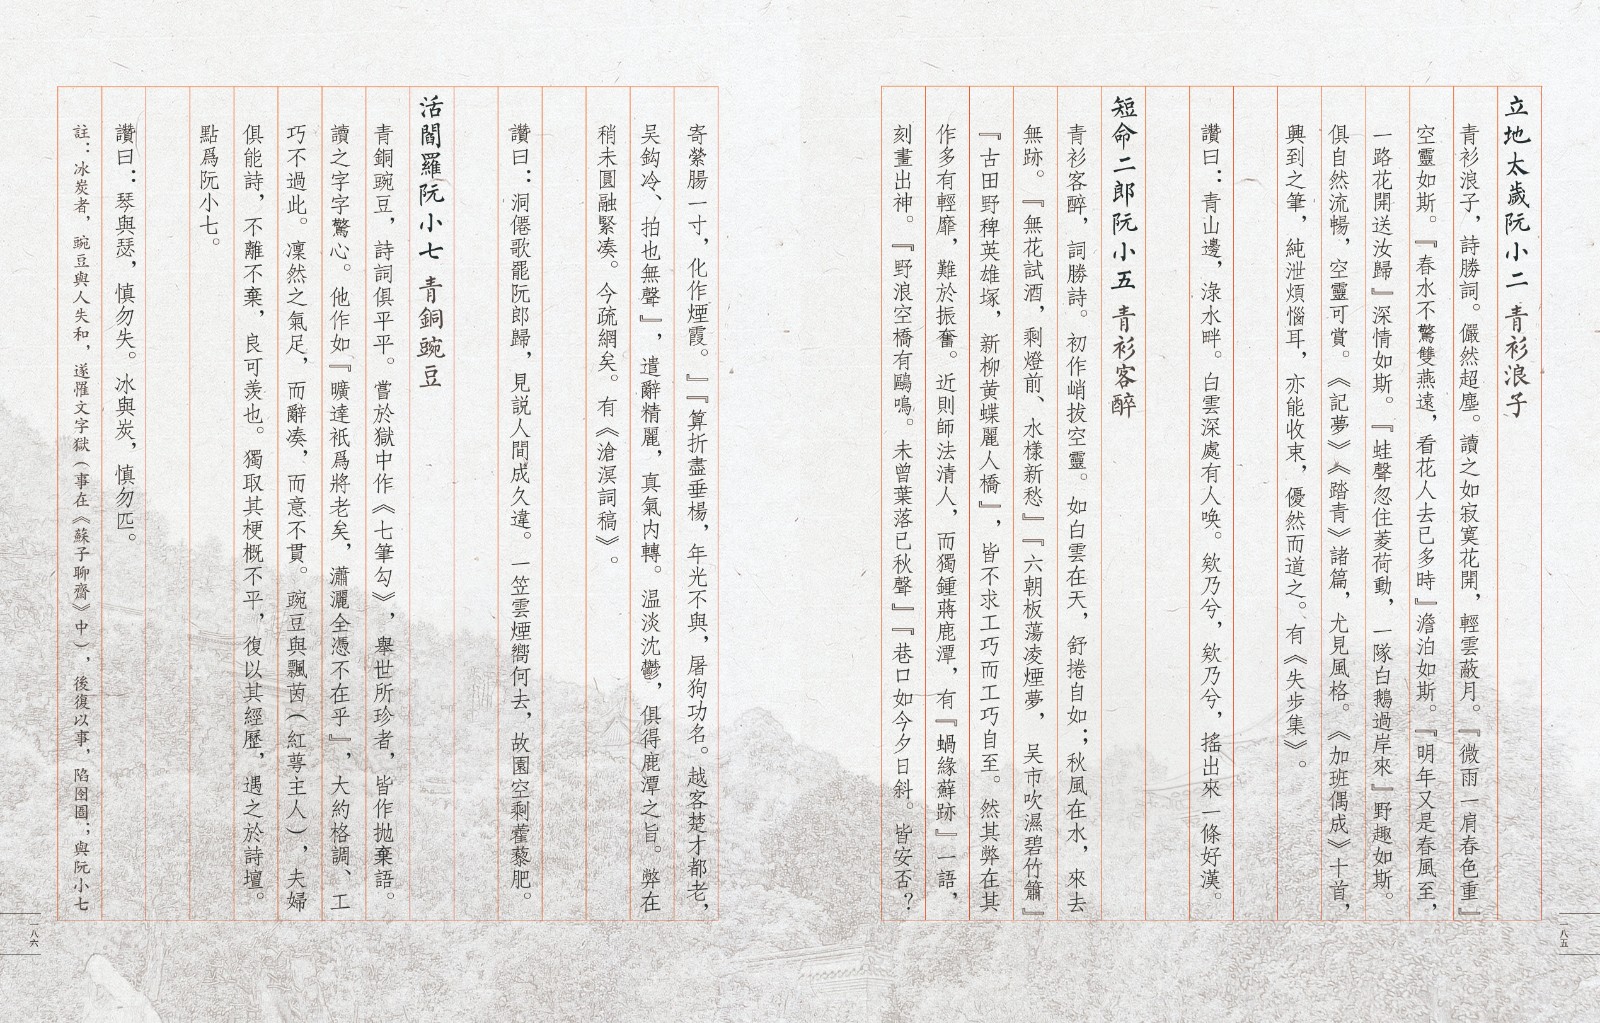 立地太歲阮小二 青衫浪子
青衫浪子，詩勝詞。儼然超塵。讀之如寂寞花開，輕雲蔽月。『微雨一肩春色重』
空靈如斯。『春水不驚雙燕遠，看花人去已多時』澹泊如斯。『明年又是春風至，
一路花開送汝歸』深情如斯。『蛙聲忽住菱荷動，一隊白鵝過岸來』野趣如斯。
俱自然流暢，空靈可賞。《記夢》《踏青》諸篇，尤見風格。《加班偶成》十首，
興到之筆，純泄煩惱耳，亦能收束，優然而道之。有《失步集》。
讚曰：青山邊，淥水畔。白雲深處有人喚。欸乃兮，欸乃兮，搖出來一條好漢。
短命二郎阮小五 青衫客醉
青衫客醉，詞勝詩。初作峭拔空靈。如白雲在天，舒捲自如；秋風在水，來去
無跡。『無花試酒，剩燈前、水樣新愁』『六朝板蕩凌煙夢，吴市吹濕碧竹簫』
『古田野稗英雄塚，新柳黄蝶麗人橋』，皆不求工巧而工巧自至。然其弊在其
作多有輕靡，難於振奮。近則師法清人，而獨鍾蔣鹿潭，有『蝸緣蘚跡』一語，
刻畫出神。『野浪空橋有鷗鳴。未曾葉落已秋聲』『巷口如今夕日斜。皆安否？
寄縈腸一寸，化作煙霞。』『算折盡垂楊，年光不與，屠狗功名。越客楚才都老，
吴鈎冷、拍也無聲』，遣辭精麗，真氣内轉。温淡沈鬱，俱得鹿潭之旨。弊在
稍未圓融緊凑。今疏網矣。有《滄溟詞稿》。
讚曰：洞僊歌罷阮郎歸，見説人間成久違。一笠雲煙嚮何去，故園空剩藿藜肥。
活閻羅阮小七 青銅豌豆
青銅豌豆，詩詞俱平平。嘗於獄中作《七筆勾》，舉世所珍者，皆作抛棄語。
讀之字字驚心。他作如『曠達衹爲將老矣，瀟灑全憑不在乎』，大約格調、工
巧不過此。凜然之氣足，而辭凑，而意不貫。豌豆與飄茵（紅萼主人），夫婦
俱能詩，不離不棄，良可羡也。獨取其梗概不平，復以其經歷，遇之於詩壇。
點爲阮小七。
讚曰：琴與瑟，慎勿失。冰與炭，慎勿匹。
註：冰炭者，豌豆與人失和，遂罹文字獄（事在《蘇子聊齋》中），後復以事，陷囹圄；與阮小七
一八五
一八六